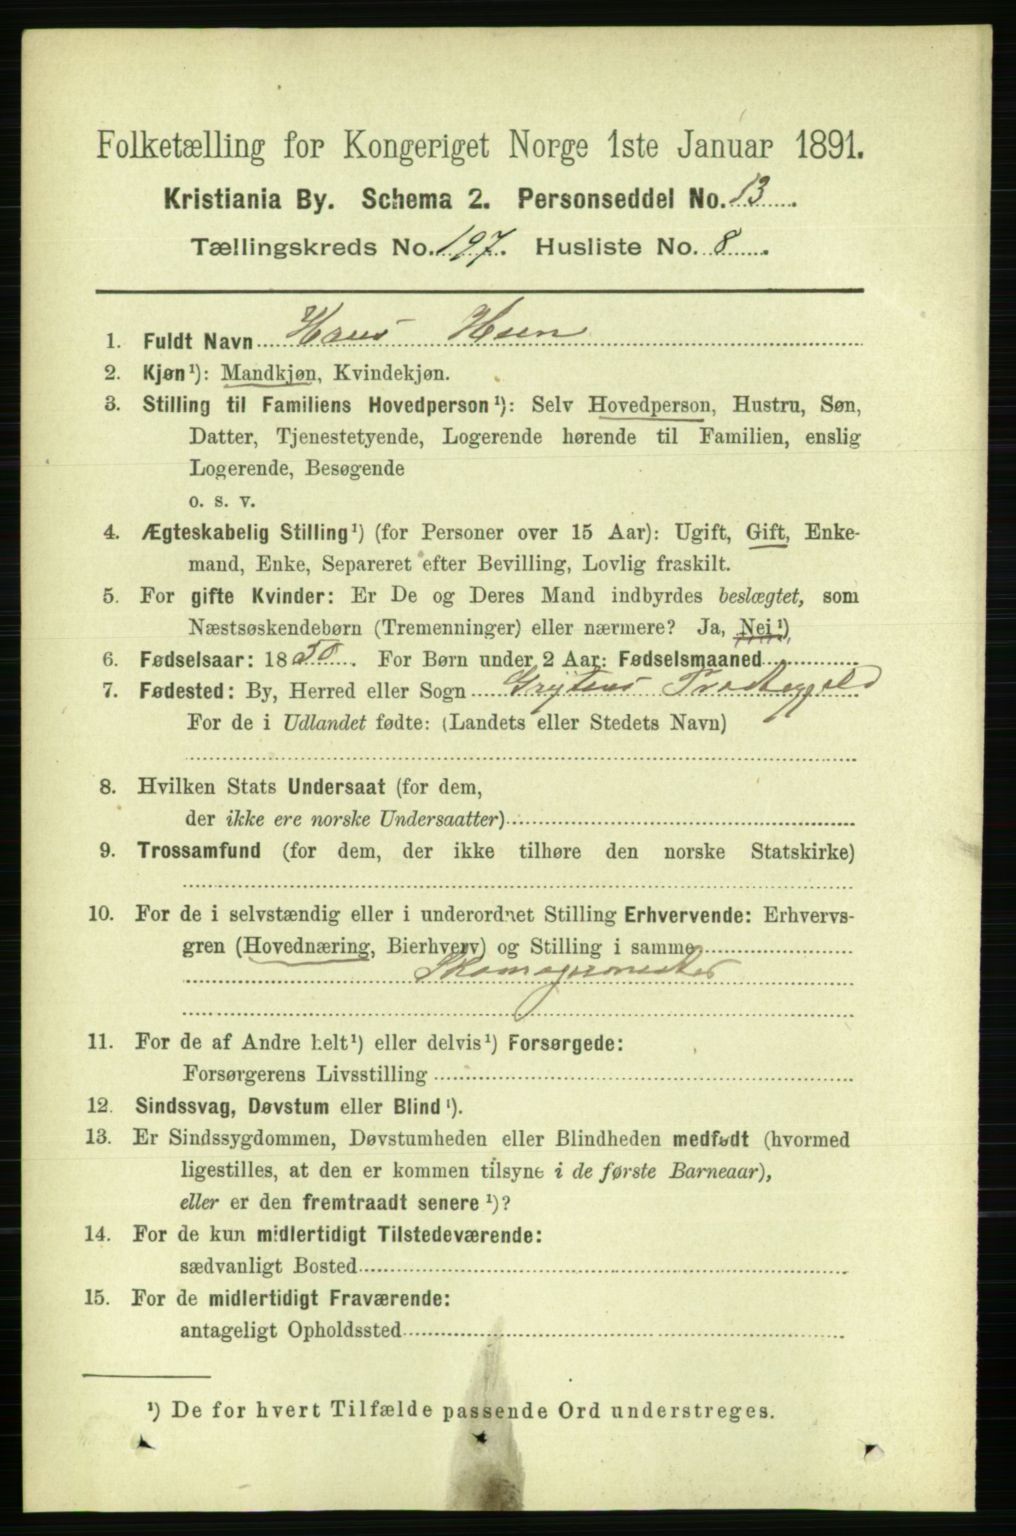 Folketælling for Kongeriget Norge 1ste Januar 1891.
Kristiania By. Schema 2. Personseddel No. 13.
Tællingskreds No. 197. Husliste No. 8.
1. Fuldt Navn Hans Heen
2. Kjøn¹): Mandkjøn, Kvindekjøn.
3. Stilling til Familiens Hovedperson¹): Selv Hovedperson, Hustru, Søn,
Datter, Tjenestetyende, Logerende hørende til Familien, enslig
Logerende, Besøgende
o. s. v.
4. Ægteskabelig Stilling¹) (for Personer over 15 Aar): Ugift, Gift, Enke-
mand, Enke, Separeret efter Bevilling, Lovlig fraskilt.
5. For gifte Kvinder: Er De og Deres Mand indbyrdes beslægtet, som
Næstsøskendebørn (Tremenninger) eller nærmere? Ja, Nei¹),
6. Fødselsaar: 1850. For Børn under 2 Aar: Fødselsmaaned
7. Fødested: By, Herred eller Sogn Grytens Præstegjeld
For de i Udlandet fødte: (Landets eller Stedets Navn)
8. Hvilken Stats Undersaat (for dem,
der ikke ere norske Undersaatter)
9. Trossamfund (for dem, der ikke tilhøre den norske Statskirke)
10. For de i selvstændig eller i underordnet Stilling Erhvervende: Erhvervs-
gren (Hovednæring, Bierhverv) og Stilling i samme
Skomagermester
11. For de af Andre helt¹) eller delvis¹) Forsørgede:
Forsørgerens Livsstilling
12. Sindssvag, Døvstum eller Blind¹).
13. Er Sindssygdommen, Døvstumheden eller Blindheden medfødt (hvormed
ligestilles, at den er kommen tilsyne i de første Barneaar),
eller er den fremtraadt senere¹)?
14. For de kun midlertidigt Tilstedeværende:
sædvanligt Bosted
15. For de midlertidigt Fraværende:
antageligt Opholdssted
¹) De for hvert Tilfælde passende Ord understreges.